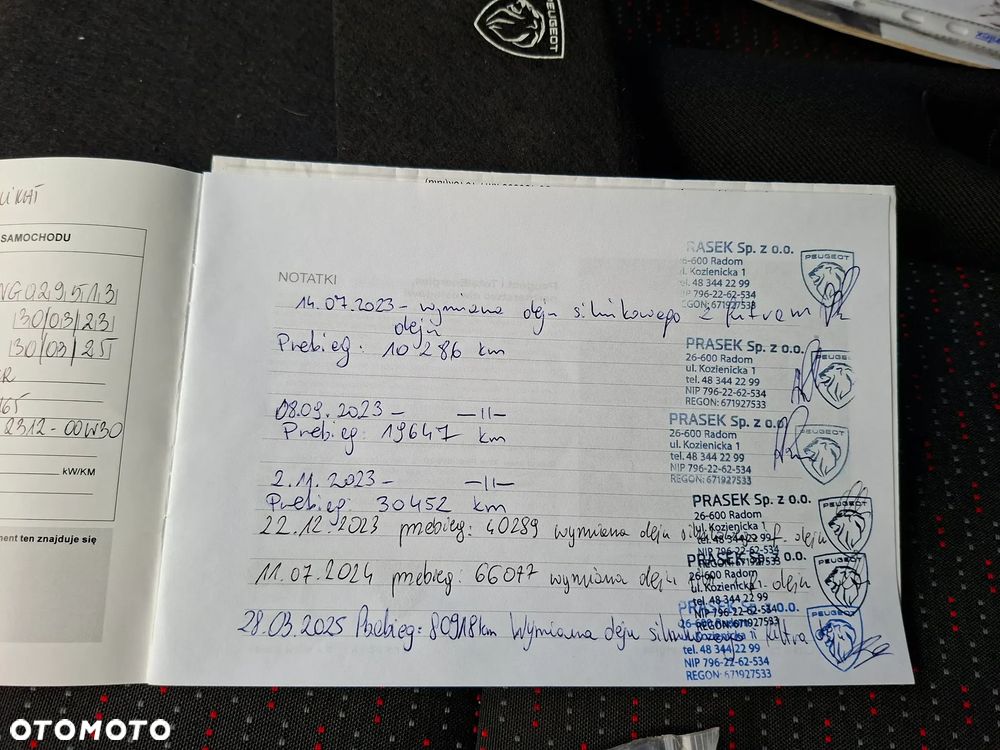 PEUGEOT
SAMOCHODU
30/03/23
30/03/25
2312-00W30
kW/KM
ment ten znajduje się
NOTATKI
14.07.2023 - wymiana oleju silnikowego z filtrem
oleju
Przebieg: 10286 km
08.09.2023 - —||—
Przebieg: 19647 km
2.11.2023 - —||—
Przebieg: 30452 km
22.12.2023 przebieg: 40289 wymiana oleju f. oleju
11.07.2024 przebieg: 66077 wymiana oleju oleju
28.03.2025 Przebieg: 80918 km Wymiana oleju filtra
RASEK Sp. z o.o.
6-600 Radom
ul. Kozienicka 1
48 344 22 99
NIP 796-22-62-534
EGON: 671927533
PEUGEOT
PRASEK Sp. z o.o.
26-600 Radom
ul. Kozienicka 1
tel. 48 344 22 99
NIP 796-22-62-534
REGON: 671927533
PEUGEOT
PRASEK Sp. z o.o.
26-600 Radom
ul. Kozienicka 1
tel. 48 344 22 99
NIP 796-22-62-534
REGON: 671927533
PEUGEOT
PRASEK Sp. z o.o.
26-600 Radom
ul. Kozienicka 1
tel. 48 344 22 99
NIP 796-22-62-534
REGON: 671927533
PEUGEOT
PRASEK Sp. z o.o.
26-600 Radom
ul. Kozienicka 1
tel. 48 344 22 99
NIP 796-22-62-534
REGON: 671927533
PEUGEOT
PRASEK Sp. z o.o.
26-600 Radom
Kozienicka 1
tel. 48 344 22 99
NIP 796-22-62-534
REGON: 671927533
PEUGEOT
OTOMOTO